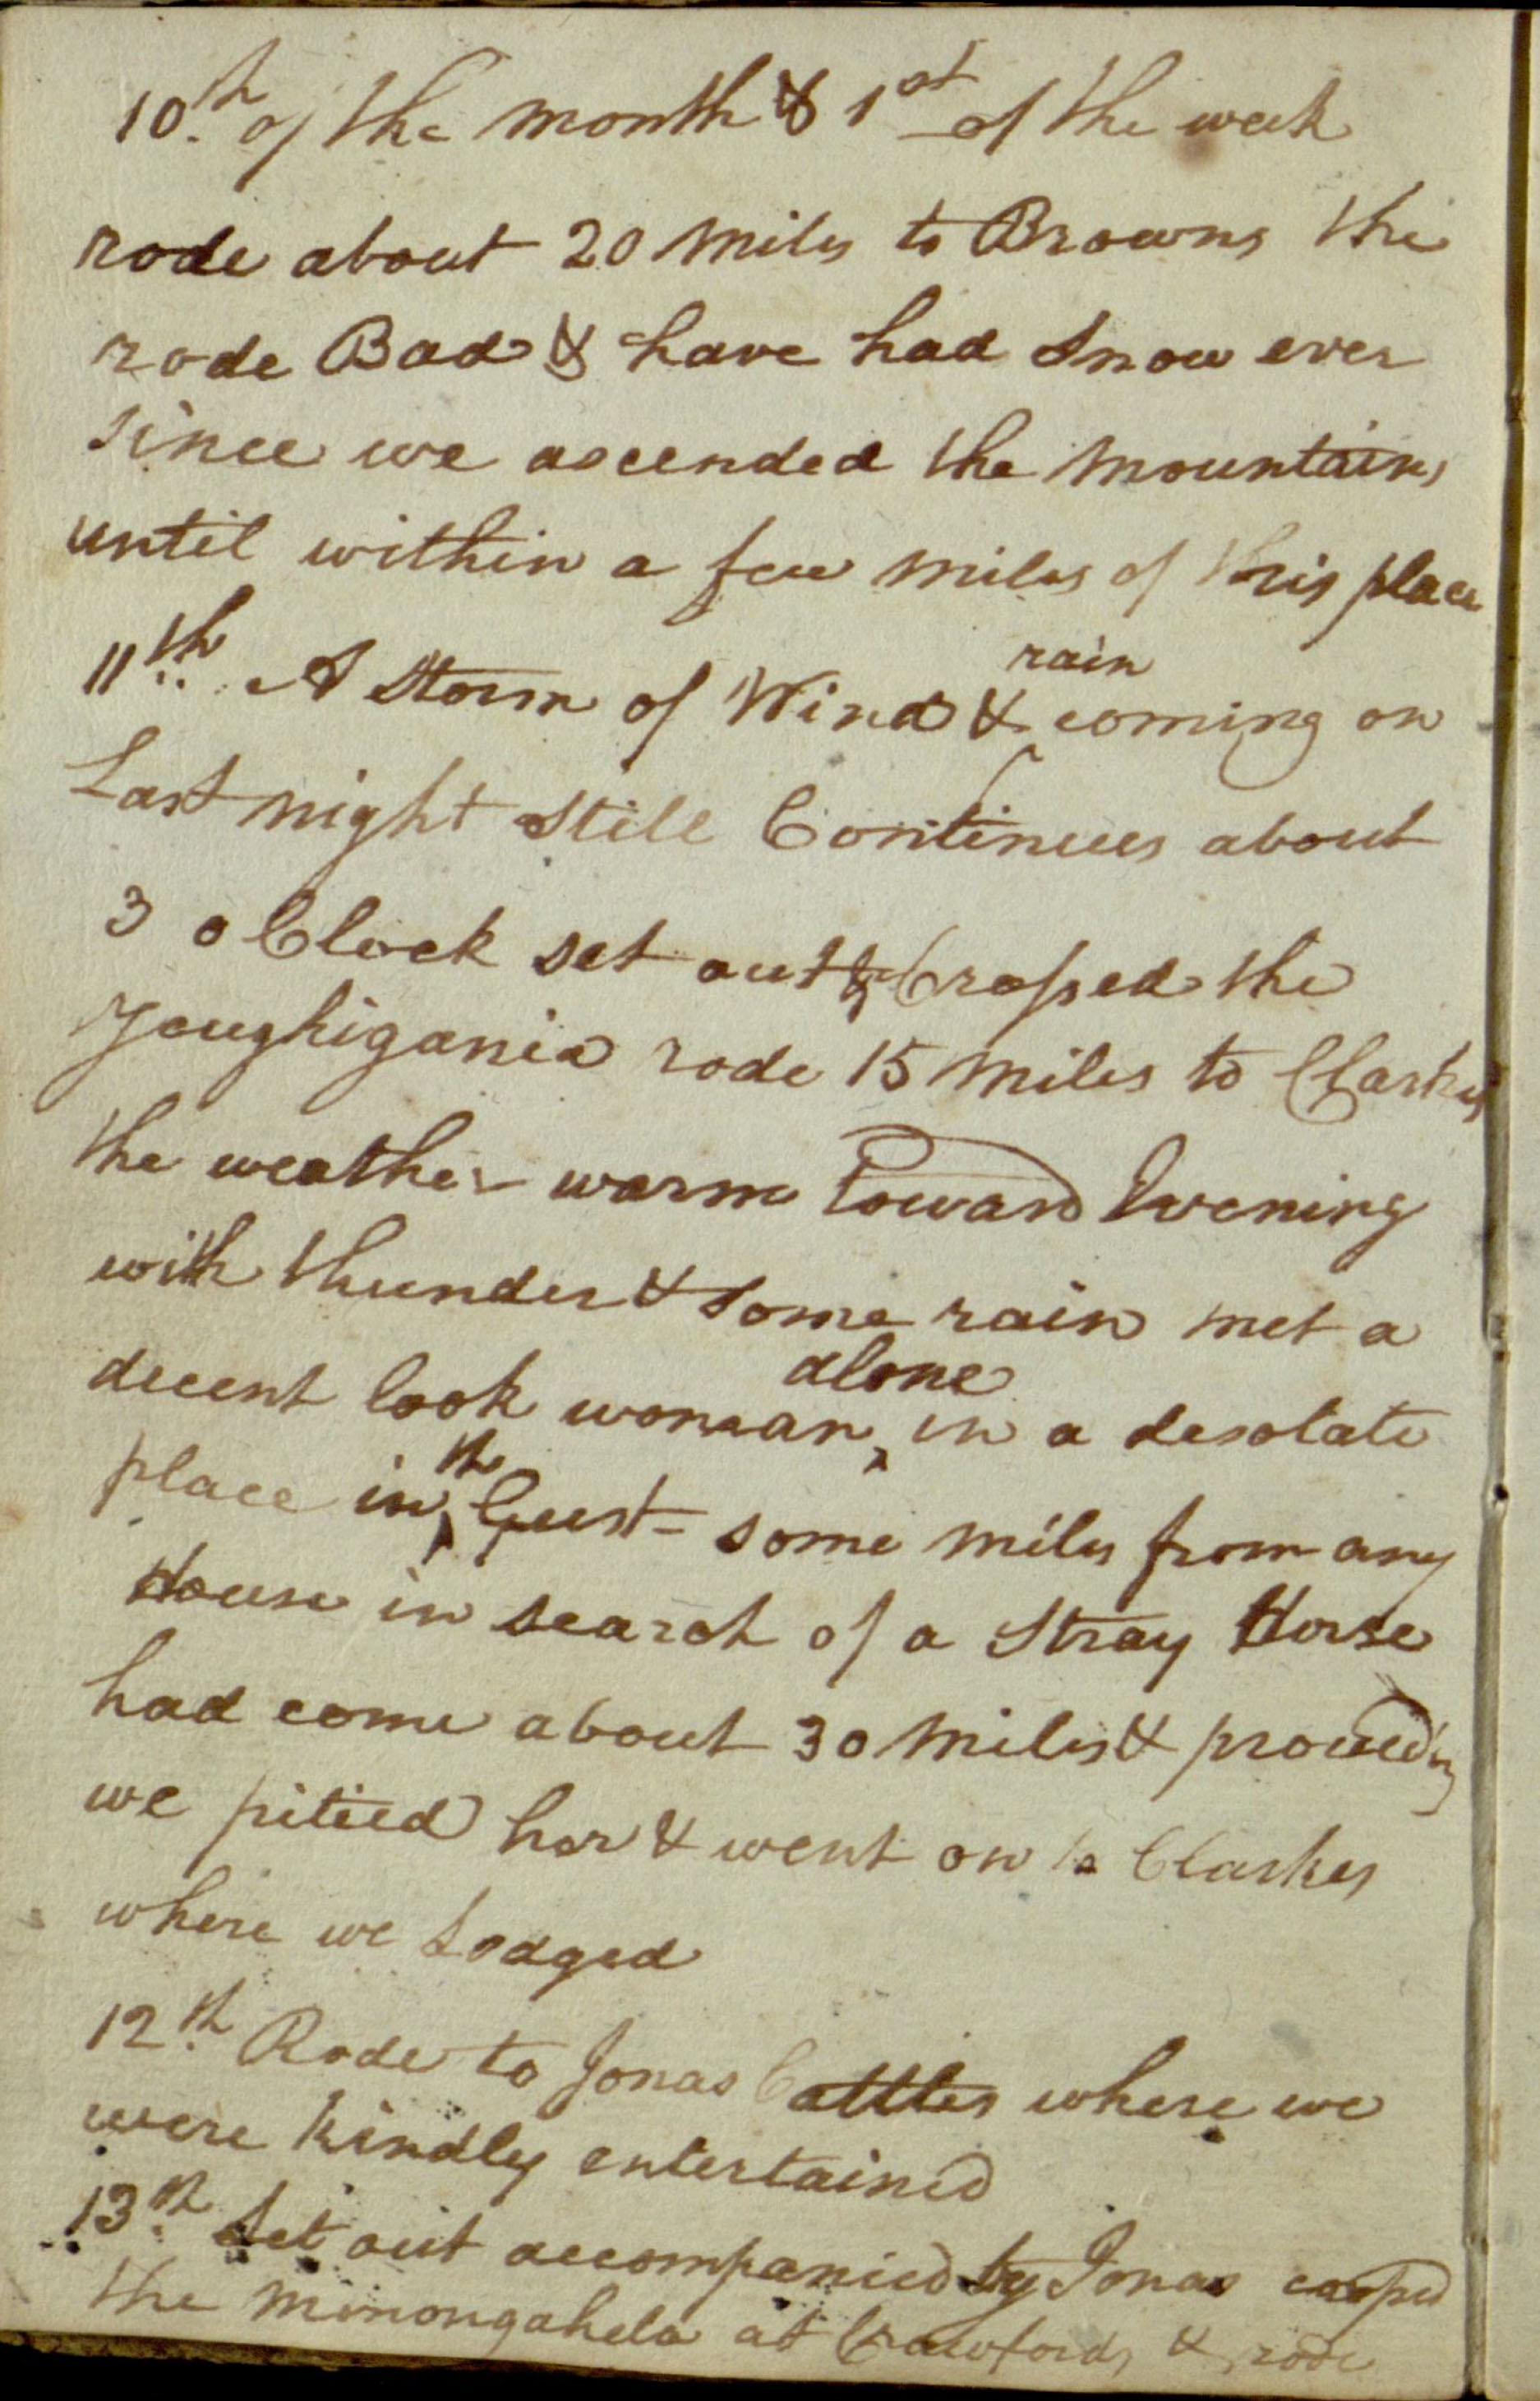 10th of the month & 1st of the week
rode about 20 Miles to Browns the
rode Bad & have had Snow ever
Since we ascended the Mountains
until within a few miles of this place
11th A Storm of Wind & rain coming on
Last night Still Continues about
3 o Clock set out & Crossed the
Youghigania rode 15 Miles to Clarkes
the weather warm toward Evening
with thunder & Some rain met a
decent look woman alone in a desolate
place in the Gust - some miles from any
House in search of a Stray Horse
had come about 30 Miles & proceeding
we pitied her & went on to Clarkes
where we Lodged
12th Rode to Jonas Cattles where we
were kindly entertained
13th Set out accompanied by Jonas
the Monongahela at Crawfords & rode